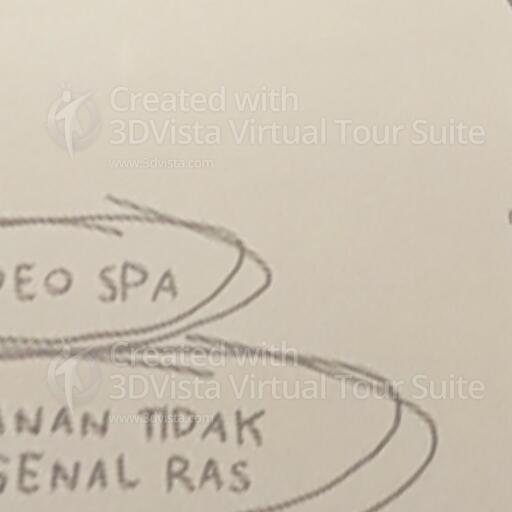 Created with
3DVista Virtual Tour Suite
www.3dvista.com
DEO SPA
Created with
3DVista Virtual Tour Suite
www.3dvista.com
ANAN TIDAK
GENAL RAS